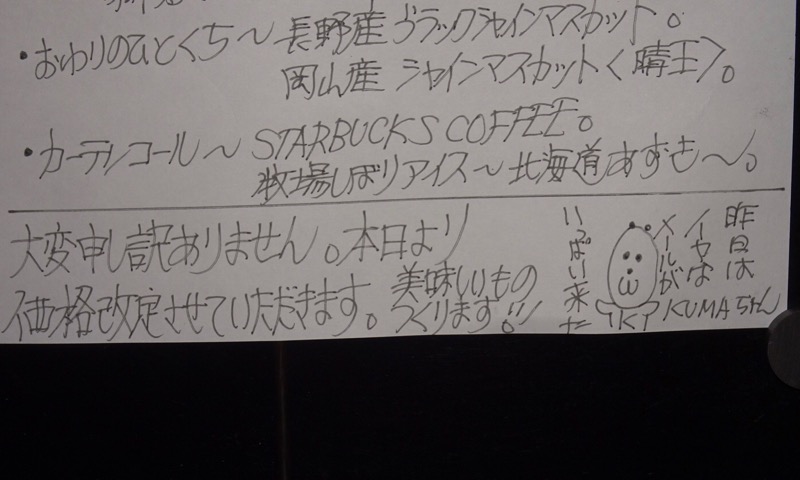 ・おわりのひとくち〜長野産ブラックシャインマスカット。
岡山産 シャインマスカット<晴王>。
・カーテンコール〜STARBUCKS COFFEE。
牧場しぼりアイス〜北海道あずも〜。
大変申し訳ありません。本日より
価格改定させていただきます。美味しいもの
つくります!!
昨日は
イヤな
メールが
いっぱい来た
KUMAちゃん